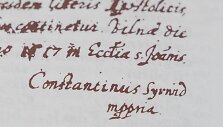 literis Apostolicis
continetur Vilnæ die
1617 in Ecclia S. Joannis.
Constantinus Syrwid
mppria.